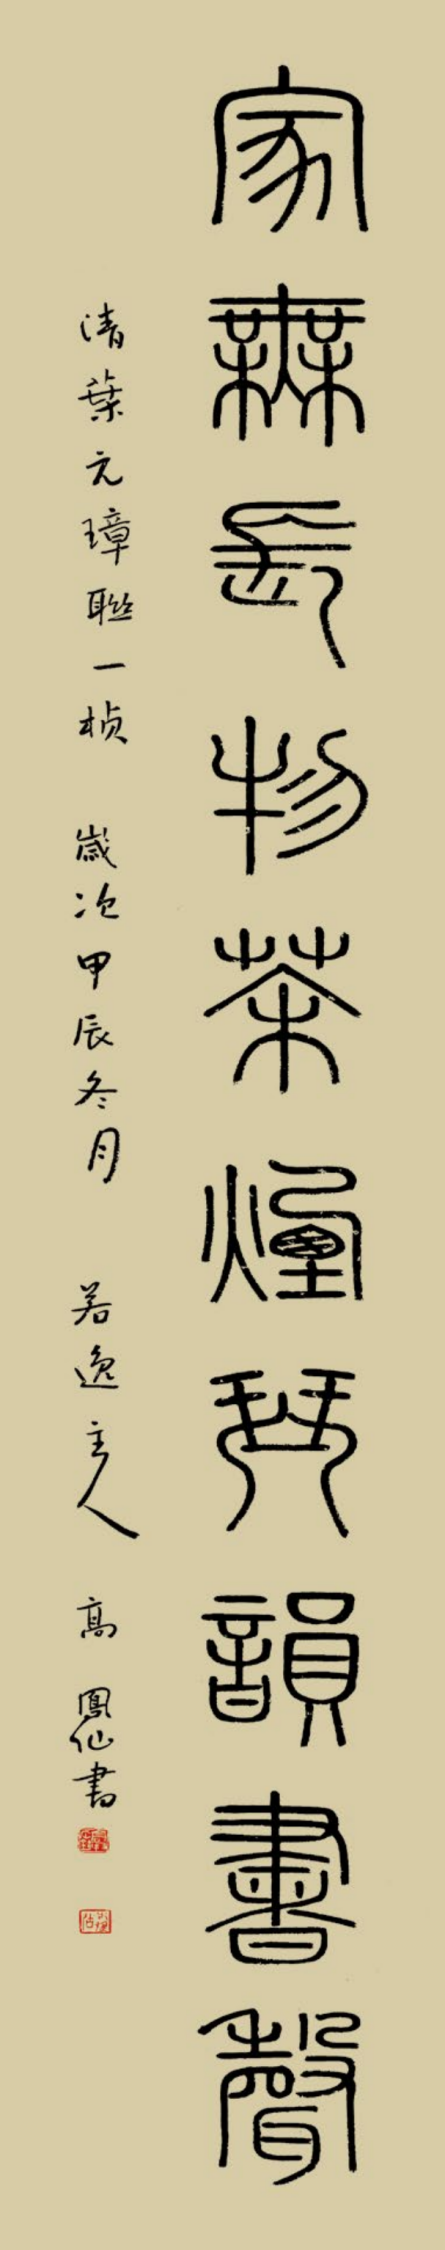 家無長物茶煙琴韻書聲
清葉元璋聯一楨 歲次甲辰冬月 若逸主人 高鳳仙書